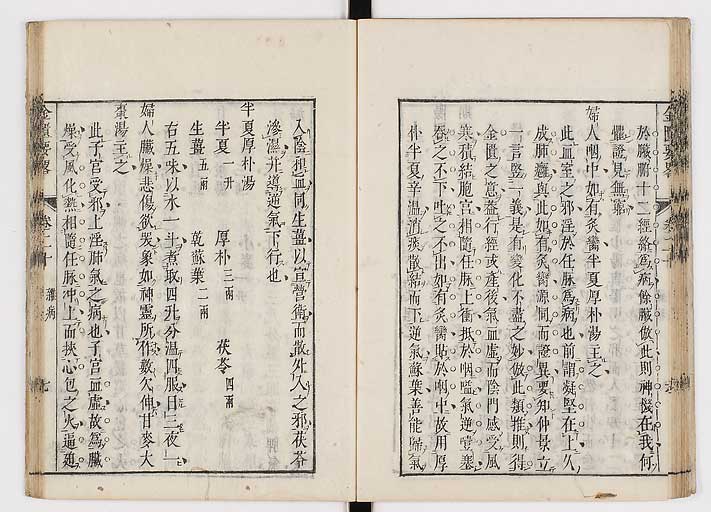 於臟腑十二經絡爲病餘臟倣此則神機在我何
懼證見無藥
婦人咽中如有炙臠半夏厚朴湯主之
此血室之邪淫於任脉爲病也前謂凝堅在上久
成肺癰與此如有炙臠源同而證異要知仲景立
一言豎一義是有變化不盡之妙倣此類推則得
金匱之意葢行經或產後氣血虛而陰門感受風
寒積結胞宮相隨任脉上衝抵於咽嗌氣逆壅塞
吞之不下吐之不出如有炙臠貼於咽中故用厚
朴半夏辛溫消痰散結而下逆氣蘇葉善能歸氣
金匱要畧
卷二十
入陰和血同生薑以宣營衛而散外入之邪茯苓
滲濕并導逆氣下行也
半夏厚朴湯
半夏一升 厚朴三兩 茯苓四兩
生薑五兩 乾蘇葉二兩
右五味以水一斗煮取四升分溫四服日三夜一
婦人臟燥悲傷欲哭象如神靈所作數欠伸甘麥大
棗湯主之
此子宮受邪上淫肺氣之病也子宮血虛故爲臟
燥受風化熱相隨任脉冲上而挾心包之火逼迫
金匱要畧
卷二十
雜病
七